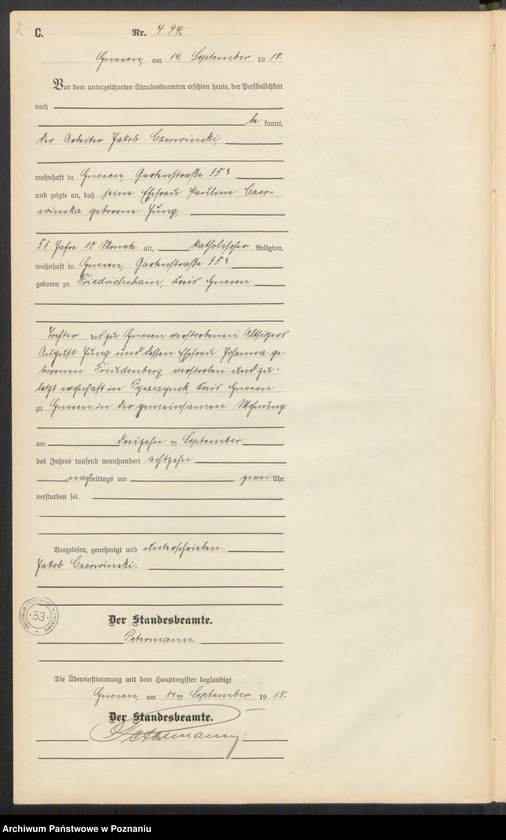 2
C.
Nr. 494.
Gnesen, am 14. September 1918.
Vor dem unterzeichneten Standesbeamten erschien heute, der Persönlichkeit
nach
be kannt,
der Arbeiter Jakob Czerwinski,
wohnhaft in Gnesen, Gartenstraße
und zeigte an, daß seine Ehefrau Pauline Czer-
winska geborene Jung,
51 Jahre 10 Monate alt, katholischer Religion,
wohnhaft in Gnesen, Gartenstraße
geboren zu Friedrichshain, Kreis Gnesen
Tochter des zu Gnesen verstorbenen Altsitzers
August Jung und dessen Ehefrau Johanna ge-
borenen Freudenberg, verstorben und zu-
letzt wohnhaft in Kreis Gnesen
zu Gnesen in der gemeinsamen Wohnung
am dreizehn ten September
des Jahres tausend neunhundert achtzehn
nachmittags um zwei Uhr
verstorben sei.
Vorgelesen, genehmigt und unterschrieben
Jakob Czerwinski.
53
Der Standesbeamte.
Petermann.
Die Übereinstimmung mit dem Hauptregister beglaubigt
Gnesen, am 14ten September 1918.
Der Standesbeamte.
Petermann
Archiwum Państwowe w Poznaniu